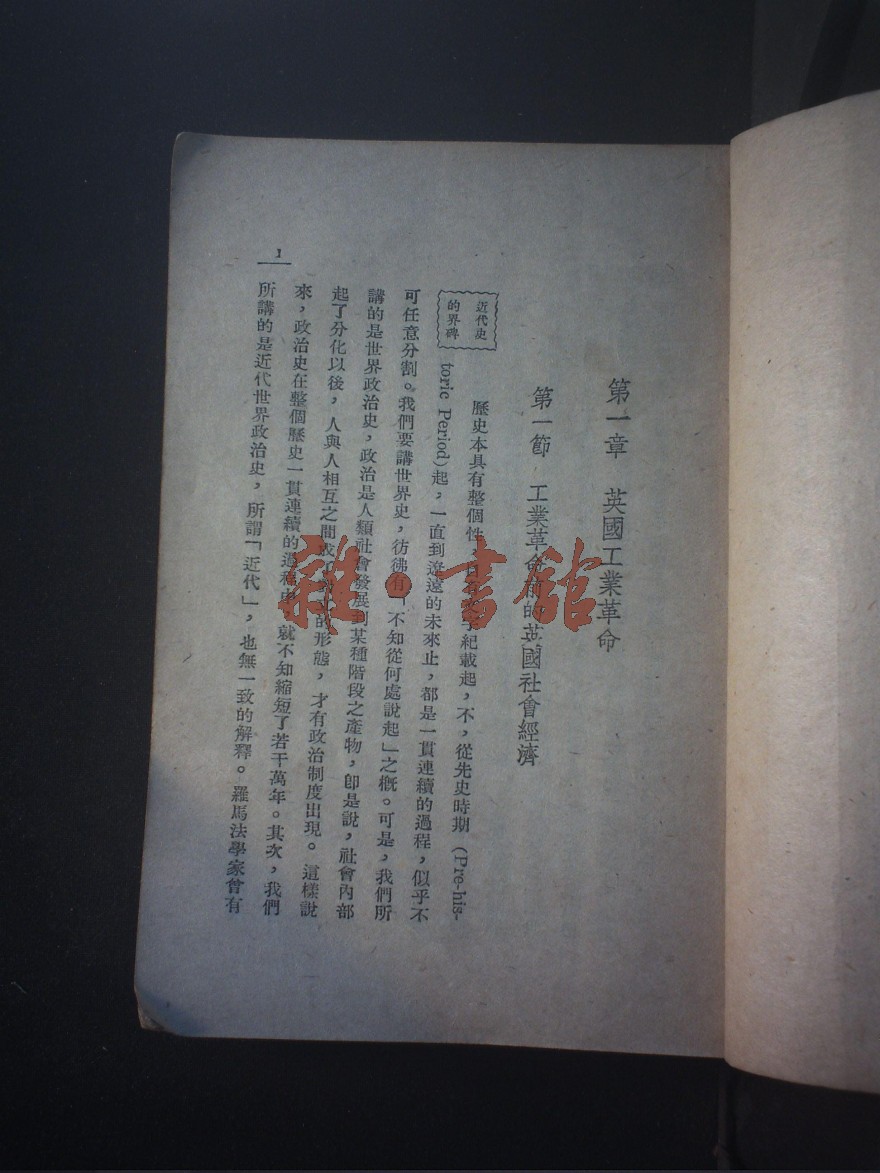 第一章　英國工業革命
第一節　工業革命前的英國社會經濟
近代史
的界碑
歷史本具有整個性，自有文字紀載起，不，從先史時期（Pre-his-
toric Period）起，一直到遼遠的未來止，都是一貫連續的過程，似乎不
可任意分割。我們要講世界史，彷彿有「不知從何處說起」之槪。可是，我們所
講的是世界政治史，政治是人類社會發展到某種階段之產物，卽是說，社會內部
起了分化以後，人與人相互之間成了 的形態，才有政治制度出現。這樣說
來，政治史在整個歷史一貫連續的過程中，就不知縮短了若干萬年。其次，我們
所講的是近代世界政治史，所謂「近代」，也無一致的解釋。羅馬法學家曾有
1
雜·書館